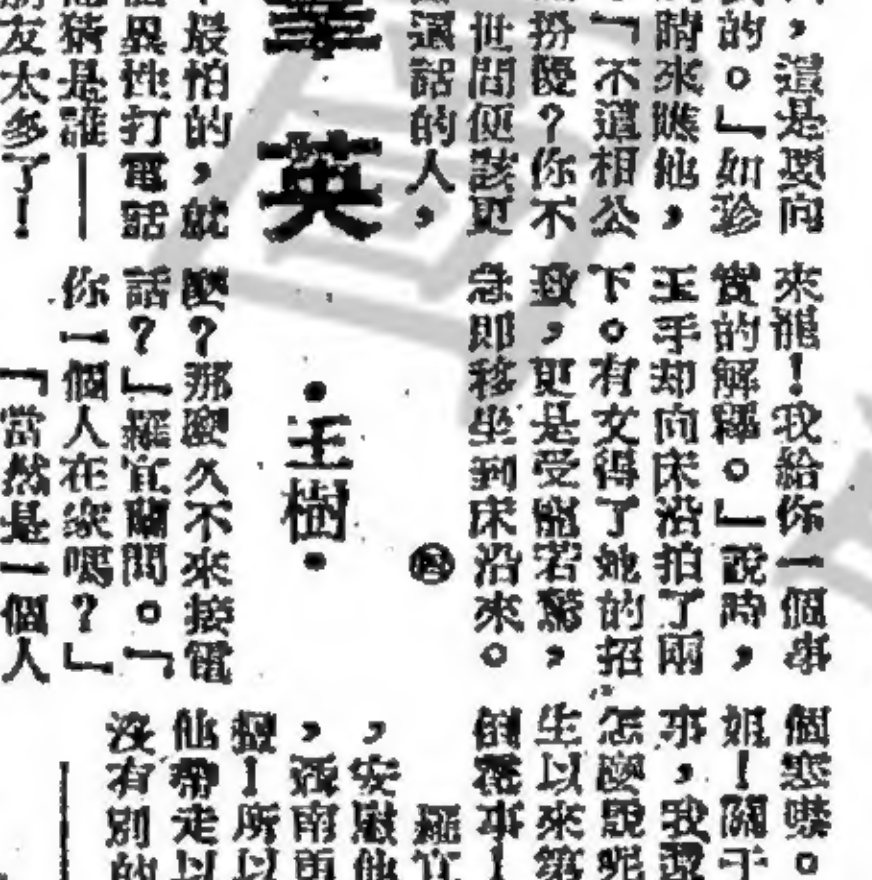 ，這是要向
的。」如珍
時來瞧他，
「不道相公
？你不
世間便該更
話的人，
英
最怕的，就
異性打電話
猜是誰——
友太多了！
來罷！我給你一個事
實的解釋。」說時，
玉手却向床沿拍了兩
下。有文得了她的招
致，更是受寵若驚，
急即移坐到床沿來。
・王樹・
麼？那麼久不來接電
話？」羅宜蘭問。「
你一個人在家嗎？」
「當然是一個人
個寒噤。
姐！關于
事，我
怎麼說呢
生以來第
倒霉事！
羅宜
，安慰他
，西南
！所以
他帶走以
沒有別的